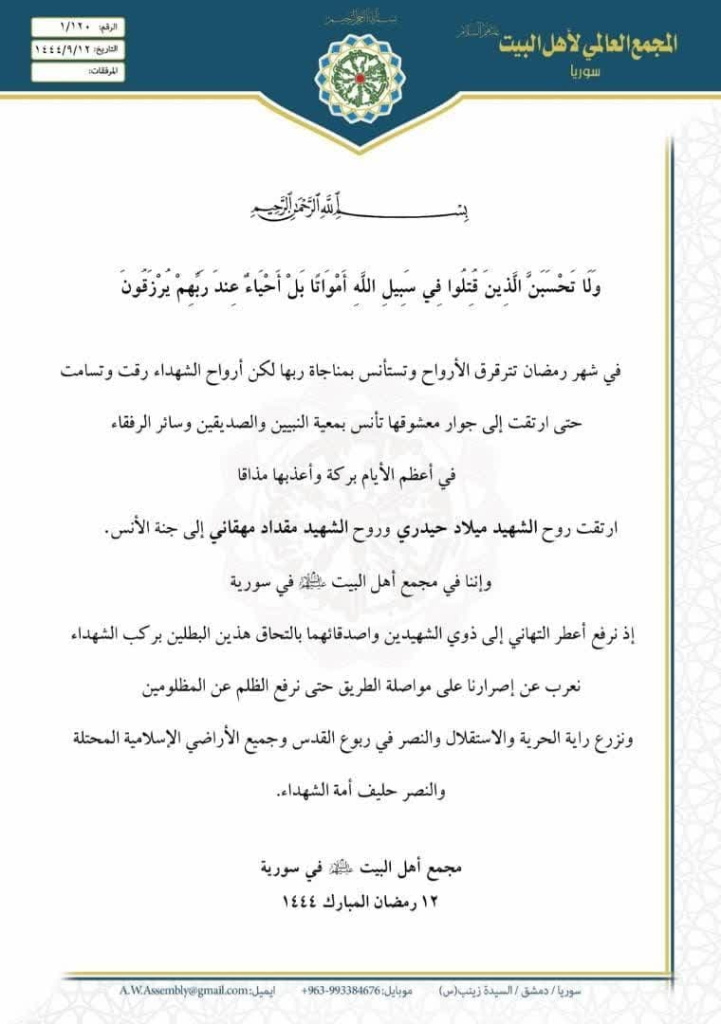 الرقم: ١/١٢٠
التاريخ: ١٤٤٤/٩/١٢
المرفقات:
بسم الله الرحمن الرحيم
المجمع العالمي لأهل البيت عليهم السلام
سوريا
بِسْمِ اللَّهِ الرَّحْمَنِ الرَّحِيمِ
وَلَا تَحْسَبَنَّ الَّذِينَ قُتِلُوا فِي سَبِيلِ اللَّهِ أَمْوَاتًا بَلْ أَحْيَاءٌ عِندَ رَبِّهِمْ يُرْزَقُونَ
في شهر رمضان تترقرق الأرواح وتستأنس بمناجاة ربها لكن أرواح الشهداء رقت وتسامت
حتى ارتقت إلى جوار معشوقها تأنس بمعية النبيين والصديقين وسائر الرفقاء
في أعظم الأيام بركة وأعذبها مذاقا
ارتقت روح الشهيد ميلاد حيدري وروح الشهيد مقداد مهقاني إلى جنة الأنس.
وإننا في مجمع أهل البيت عليهم السلام في سورية
إذ نرفع أعطر التهاني إلى ذوي الشهيدين واصدقائهما بالتحاق هذين البطلين بركب الشهداء
نعرب عن إصرارنا على مواصلة الطريق حتى نرفع الظلم عن المظلومين
ونزرع راية الحرية والاستقلال والنصر في ربوع القدس وجميع الأراضي الإسلامية المحتلة
والنصر حليف أمة الشهداء.
مجمع أهل البيت عليهم السلام في سورية
١٢ رمضان المبارك ١٤٤٤
سوريا / دمشق / السيدة زينب(س) موبايل: 963-993384676+ ايميل: A.W.Assembly@gmail.com